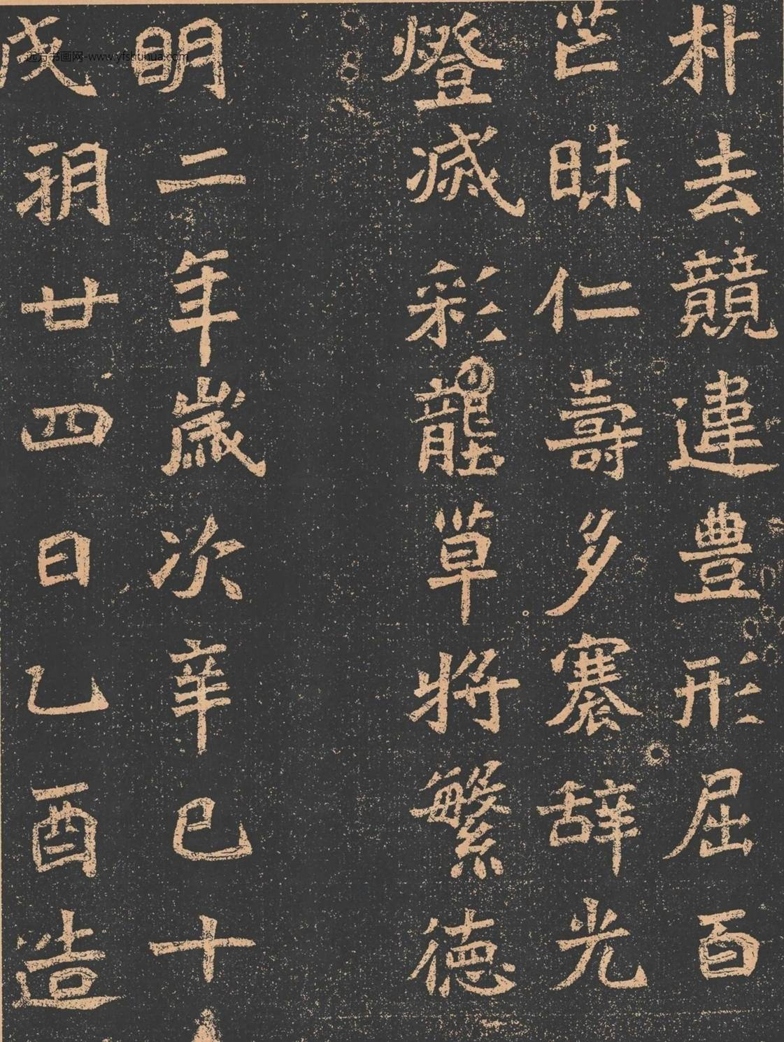 朴去競違豊形屈百
芒昧仁壽多褰辞光
燈滅彩壟草將繁德
明二年歲次辛巳十
戌朔廿四日乙酉造
书画网-www.yfshuhua.com